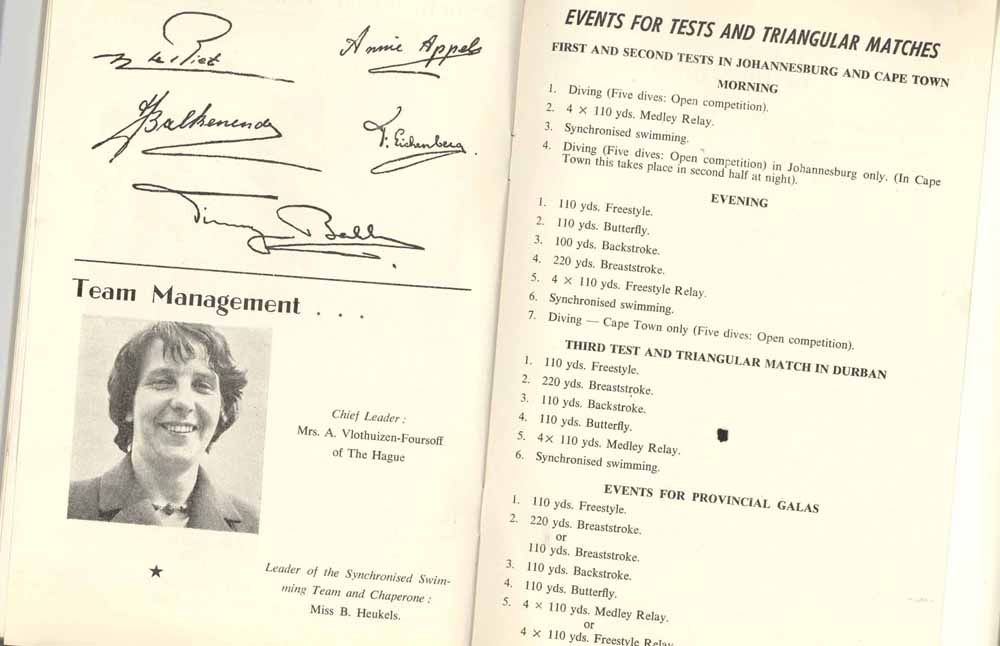 Annie Appels
Balkenende
F. Eichenberg.
Team Management . . .
Chief Leader :
Mrs. A. Vlothuizen-Foursoff
of The Hague
★
Leader of the Synchronised Swim-
ming Team and Chaperone :
Miss B. Heukels.
EVENTS FOR TESTS AND TRIANGULAR MATCHES
FIRST AND SECOND TESTS IN JOHANNESBURG AND CAPE TOWN
MORNING
1. Diving (Five dives: Open competition).
2. 4 × 110 yds. Medley Relay.
3. Synchronised swimming.
4. Diving (Five dives: Open competition) in Johannesburg only. (In Cape
Town this takes place in second half at night).
EVENING
1. 110 yds. Freestyle.
2. 110 yds. Butterfly.
3. 100 yds. Backstroke.
4. 220 yds. Breaststroke.
5. 4 × 110 yds. Freestyle Relay.
6. Synchronised swimming.
7. Diving — Cape Town only (Five dives: Open competition).
THIRD TEST AND TRIANGULAR MATCH IN DURBAN
1. 110 yds. Freestyle.
2. 220 yds. Breaststroke.
3. 110 yds. Backstroke.
4. 110 yds. Butterfly.
5. 4× 110 yds. Medley Relay.
6. Synchronised swimming.
EVENTS FOR PROVINCIAL GALAS
1. 110 yds. Freestyle.
2. 220 yds. Breaststroke.
or
110 yds. Breaststroke.
3. 110 yds. Backstroke.
4. 110 yds. Butterfly.
5. 4 × 110 yds. Medley Relay.
or
4 × 110 yds. Freestyle Relay